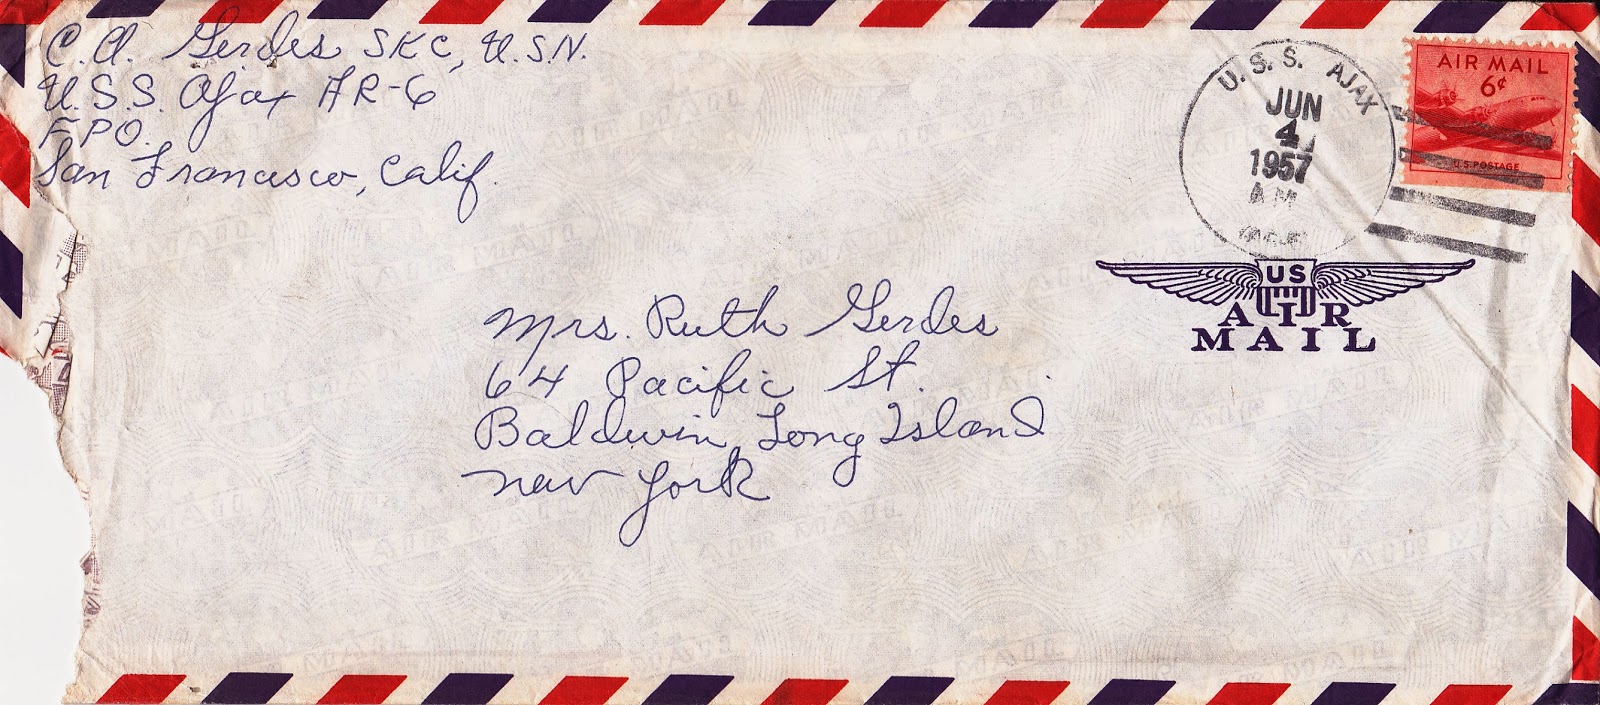 C.A. Gerdes SKC, U.S.N.
U.S.S. Ajax AR-6
F.P.O.
San Francisco, Calif.
U.S.S. AJAX
JUN
4
1957
A.M.
AIR MAIL
6¢
U.S. POSTAGE
US
AIR
MAIL
Mrs. Ruth Gerdes
64 Pacific St.
Baldwin, Long Island
New York